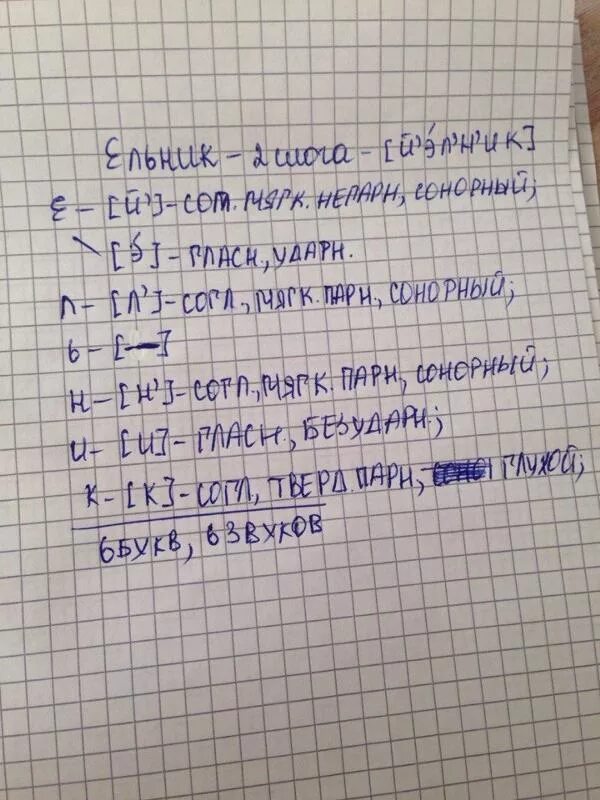 Ельник - 2 слога - [й'э́л'н'ик]
Е - [й'] - сог. мягк. непарн, сонорный;
\ [э́] - гласн., ударн.
л - [л'] - согл., мягк. парн., сонорный;
ь - [—]
н - [н'] - согл., мягк. парн, сонорный;
и - [и] - гласн., безударн.;
к - [к] - согл, тверд. парн, глухой;
6 букв, 6 звуков